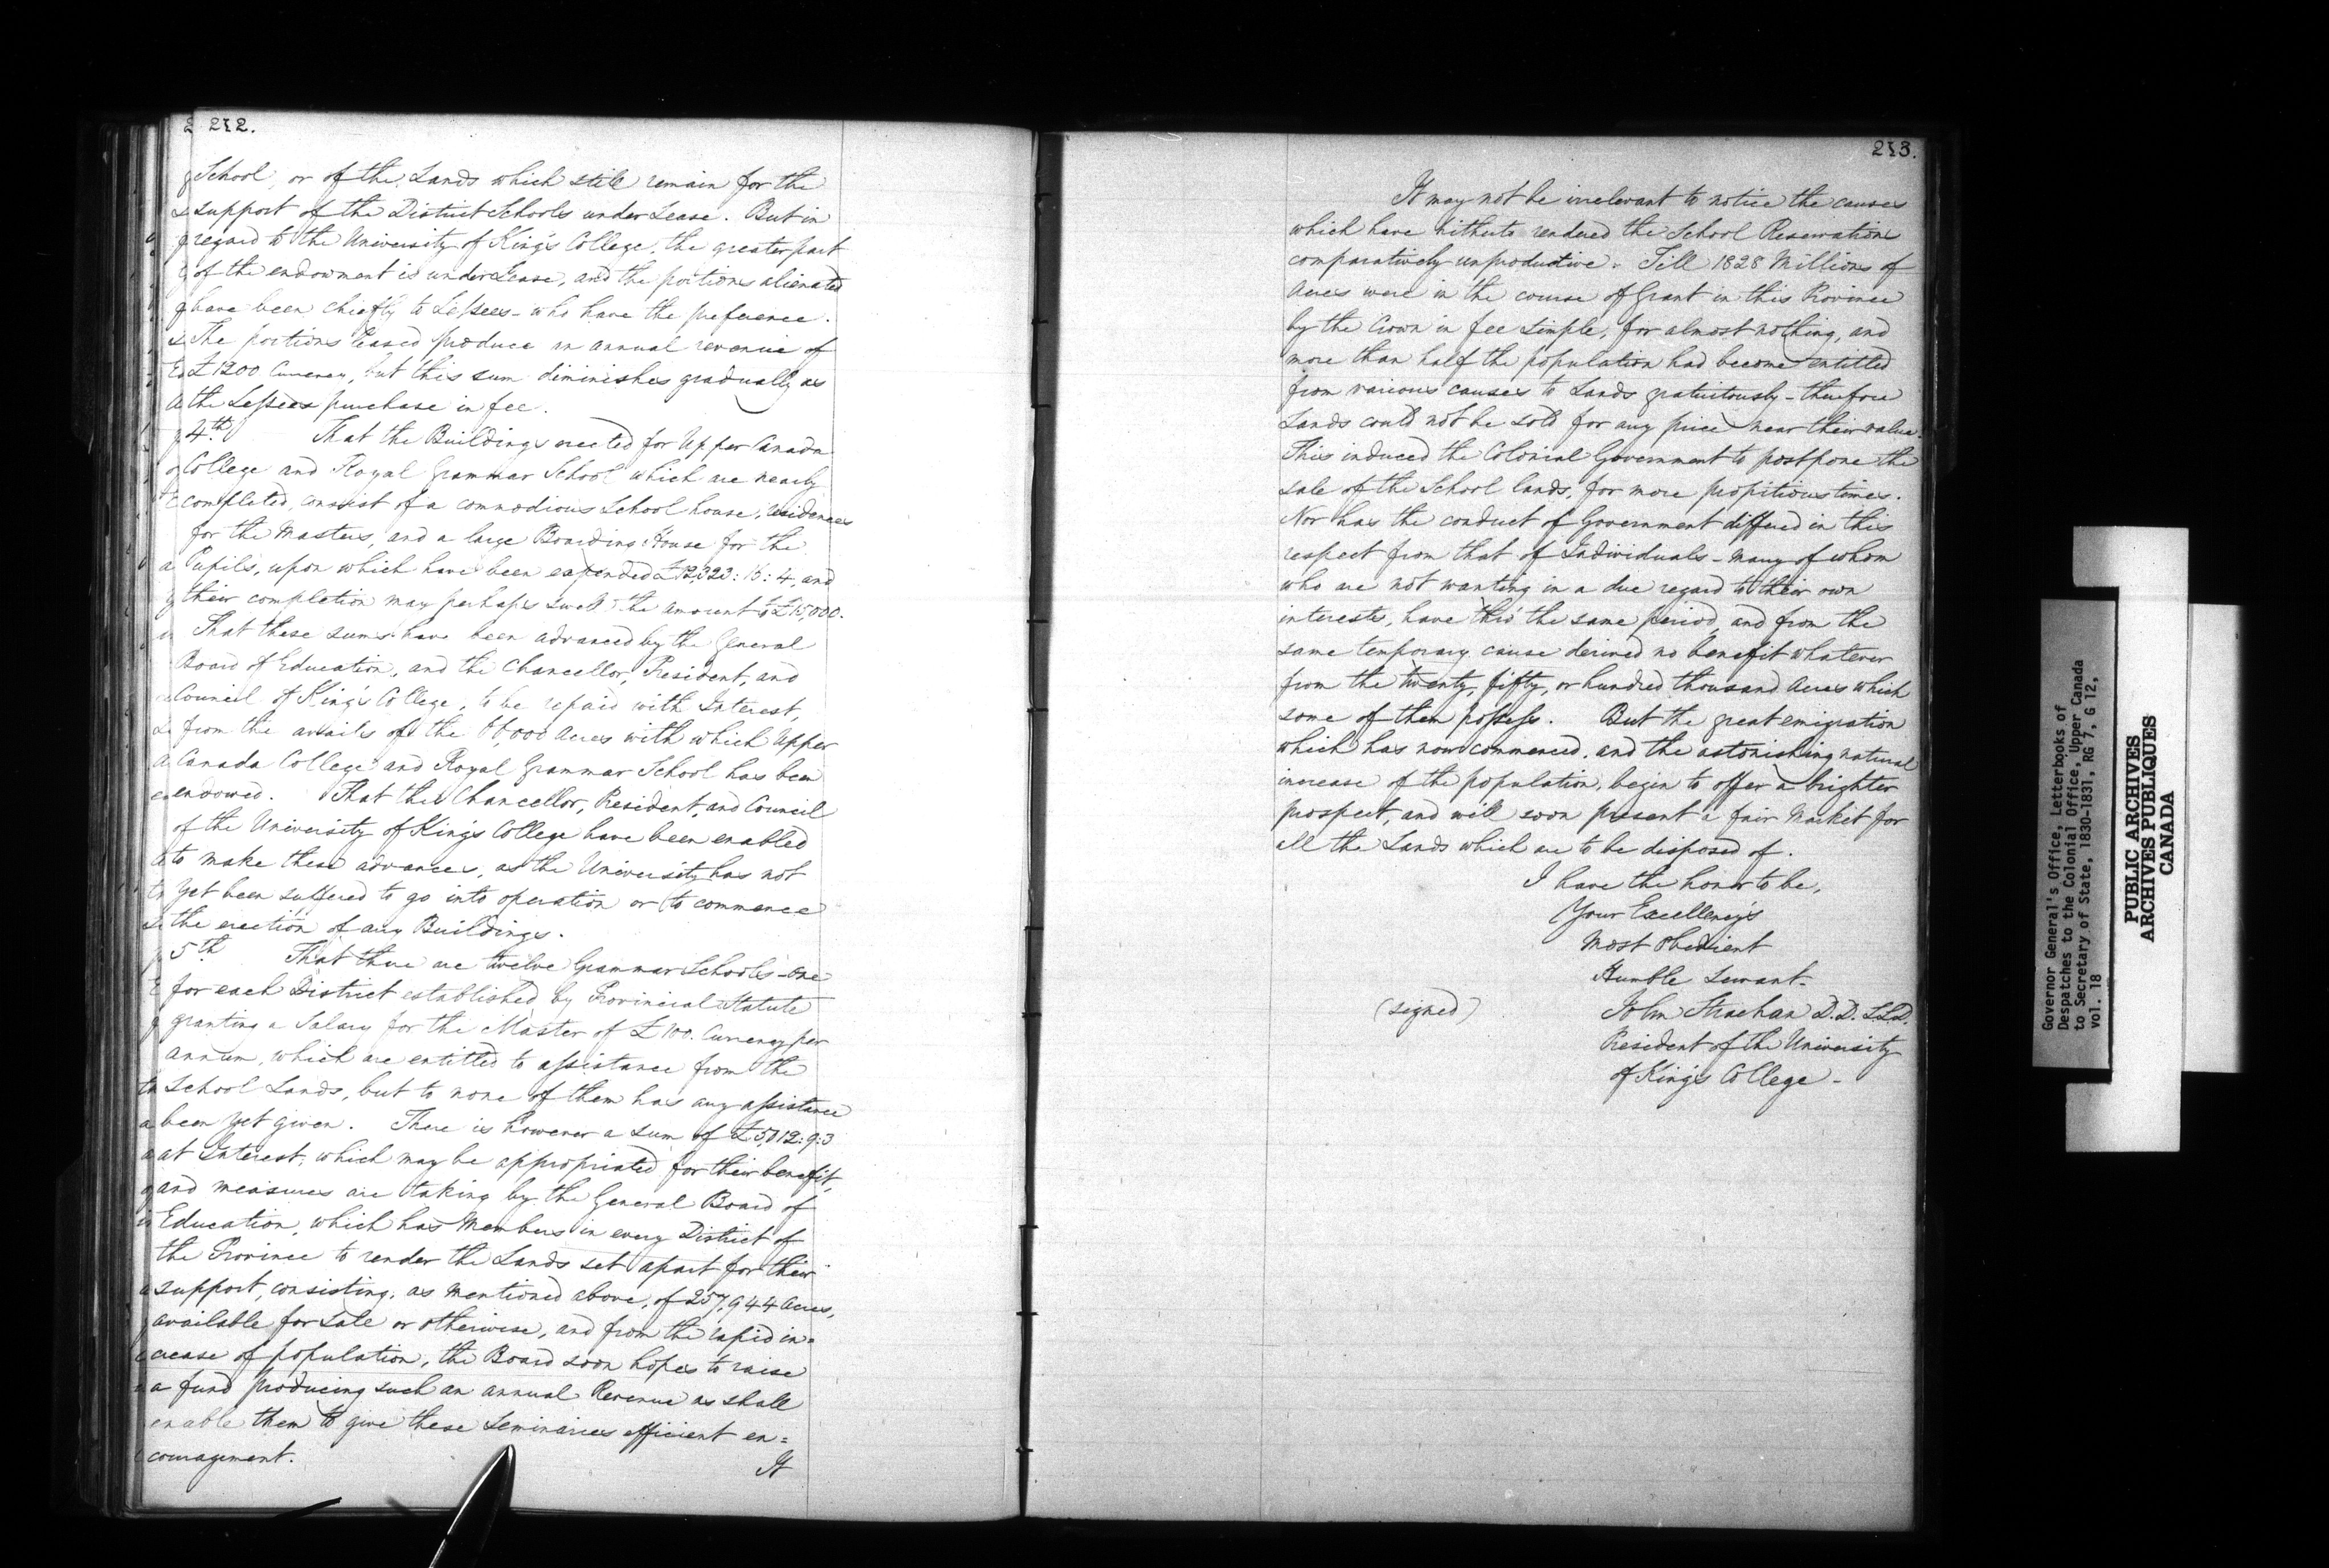 212.
School, or of the Lands which still remain for the
support of the District Schools under Lease. But in
regard to the University of King's College, the greater part
of the endowment is under Lease, and the portions alienated
have been chiefly to Lessees - who have the preference.
The portions leased produce an annual revenue of
£1200 Currency, but this sum diminishes gradually as
the Lessees purchase in fee.
4th. That the Buildings erected for Upper Canada
College and Royal Grammar School which are nearly
completed, consist of a commodious School house, residences
for the Masters, and a large Boarding House for the
Pupils, upon which have been expended and
their completion may perhaps swell the amount to £15,000.
That these sums have been advanced by the General
Board of Education, and the Chancellor, President, and
Council of King's College, to be repaid with Interest,
from the avails of the Acres with which Upper
Canada College and Royal Grammar School has been
endowed. That the Chancellor, President, and Council
of the University of King's College have been enabled
to make these advances, as the University has not
yet been suffered to go into operation or to commence
the erection of any Buildings.
5th. That there are twelve Grammar Schools - one
for each District established by Provincial Statute
granting a Salary for the Master of £100. Currency per
annum, which are entitled to assistance from the
School Lands, but to none of them has any assistance
been yet given. There is however a sum of £5,012:9:3
at Interest, which may be appropriated for their benefit,
and measures are taking by the General Board of
Education, which has Members in every District of
the Province to render the Lands set apart for their
support, consisting, as mentioned above, of 257,944 Acres,
available for Sale or otherwise, and from the rapid in=
crease of population, the Board soon hopes to raise
a fund producing such an annual Revenue as shall
enable them to give these Seminaries efficient en=
couragement.
It
213.
It may not be irrelevant to notice the causes
which have hitherto rendered the School Reservations
comparatively unproductive. Till 1828 Millions of
Acres were in the course of Grant in this Province
by the Crown in fee simple, for almost nothing, and
more than half the population had become entitled
from various causes to Lands gratuitously - therefore
Lands could not be sold for any price near their value.
This induced the Colonial Government to postpone the
sale of the School lands, for more propitious times.
Nor has the conduct of Government differed in this
respect from that of Individuals - many of whom
who are not wanting in a due regard to their own
interests, have thro' the same period, and from the
same temporary cause derived no benefit whatever
from the twenty, fifty, or hundred thousand Acres which
some of them possess. But the great emigration
which has now commenced, and the astonishing natural
increase of the population, begin to offer a brighter
prospect, and will soon present a fair Market for
all the Lands which are to be disposed of.
I have the honor to be,
Your Excellency's
Most Obedient
Humble Servant.
(signed) John Strachan D.D. LLD.
President of the University
of King's College -
Governor General's Office, Letterbooks of
Despatches to the Colonial Office, Upper Canada
to Secretary of State, 1830-1831, RG 7, G 12,
vol. 18
PUBLIC ARCHIVES
ARCHIVES PUBLIQUES
CANADA